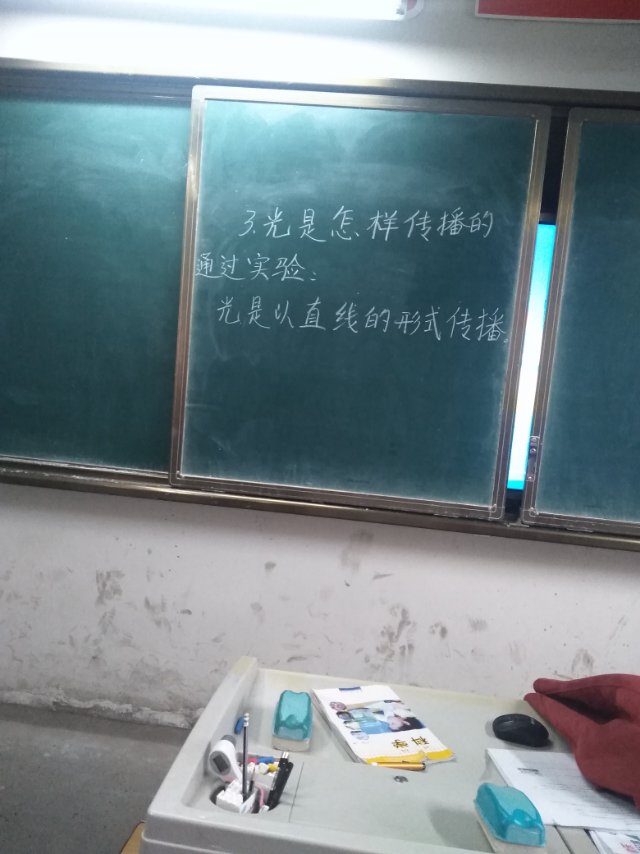 3.光是怎样传播的
通过实验:
光是以直线的形式传播。
科学